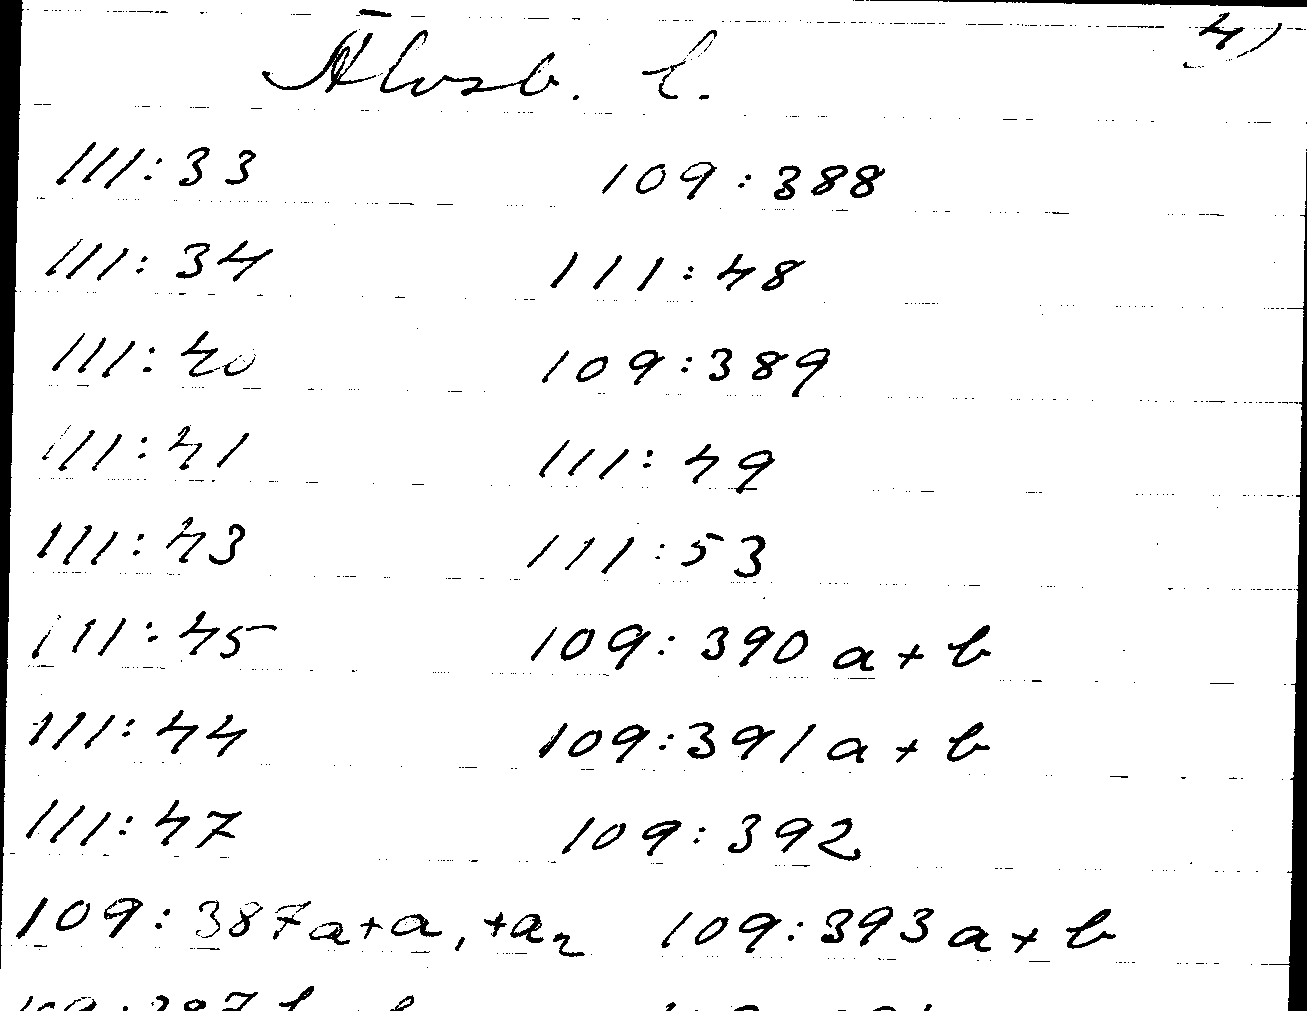 4)
Älvsb. l.
111:33 109:388
111:34 111:48
111:40 109:389
111:41 111:49
111:43 111:53
111:45 109:390 a+b
111:44 109:391 a+b
111:47 109:392
109:387a+a₁+a₂ 109:393 a+b